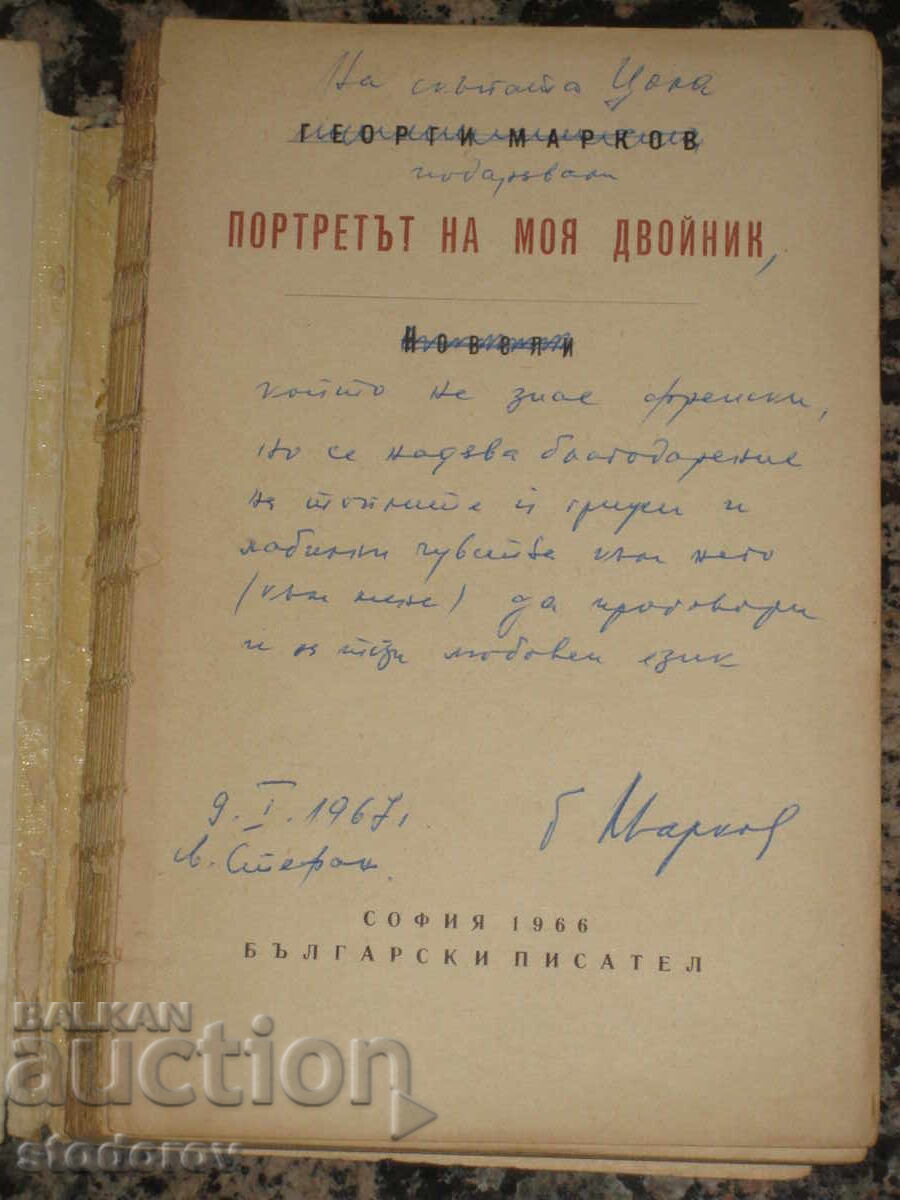 На скъпата Цона
ГЕОРГИ МАРКОВ
подарявам
ПОРТРЕТЪТ НА МОЯ ДВОЙНИК,
Новели
който не знае френски,
но се надява благодарение
на топлите ѝ грижи и
чувства към него
(към мене) да проговори
и на този любовен език
9. I. 1967г.
Г Марков
СОФИЯ 1966
БЪЛГАРСКИ ПИСАТЕЛ
BALKAN
auction
stodorov